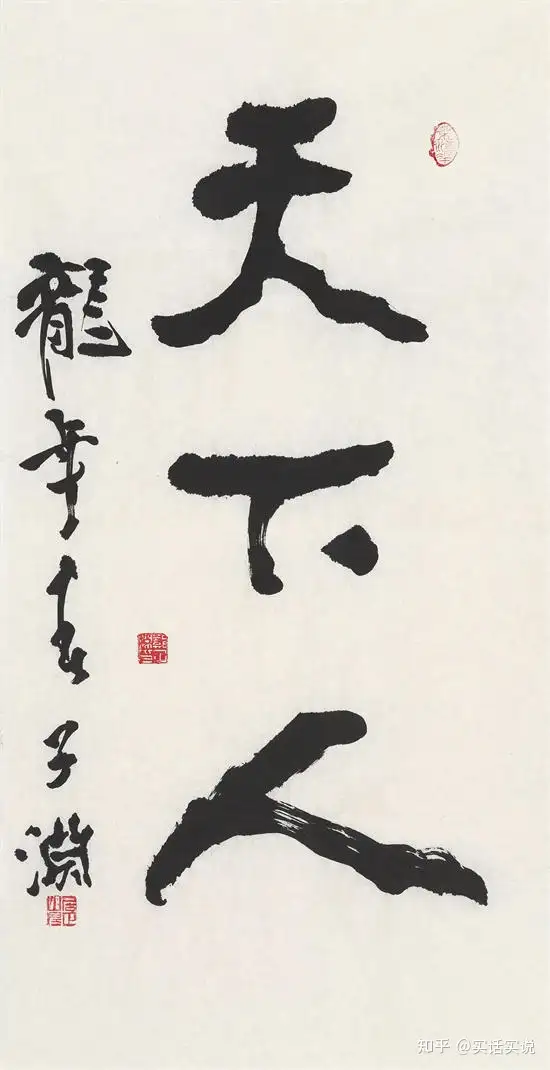 天下人
龍年春子淵
知乎 @实话实说